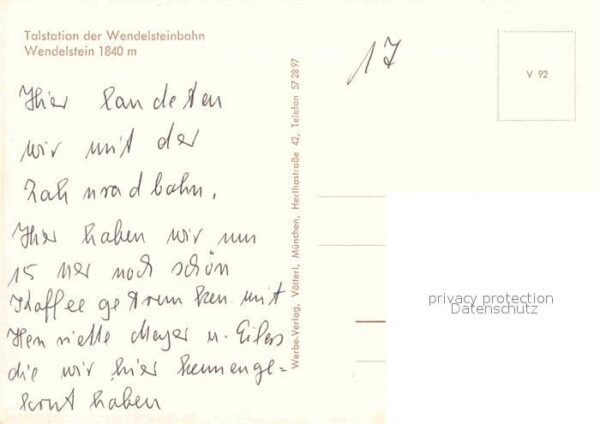 Talstation der Wendelsteinbahn
Wendelstein 1840 m
17
V 92
Hier landeten
wir mit der
Zahnradbahn.
Hier haben wir um
15 Uer noch schön
Kaffee getrunken mit
Henriette Meyer u. Eilers
die wir hier kennenge=
lernt haben
Werbe-Verlag, Völterl, München, Herthastraße 42, Telefon 57 28 97
privacy protection
Datenschutz